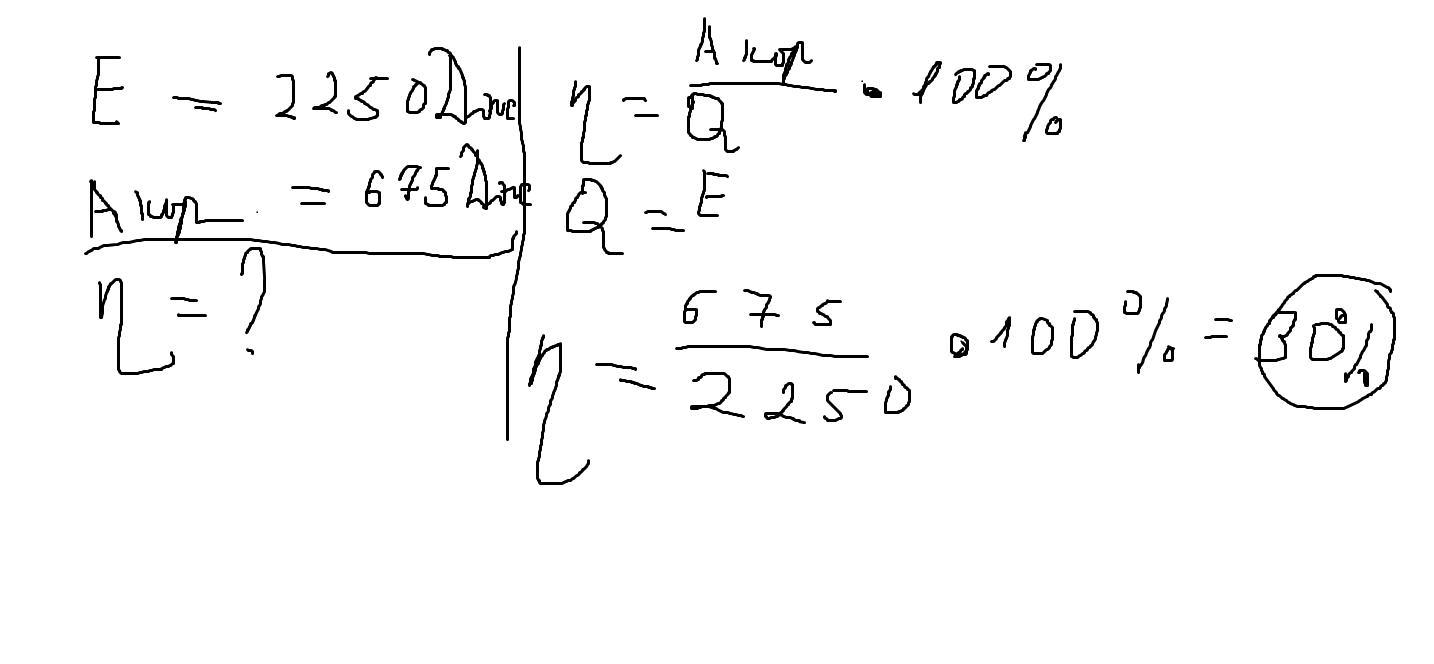 E = 2250 Дж
A кор = 675 Дж
η = ?
η = A кор / Q · 100%
Q = E
η = 675 / 2250 · 100% = 30%